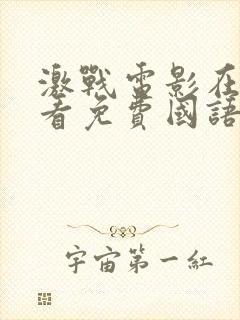 激戰電影在
看免費國語
宇宙第一紅